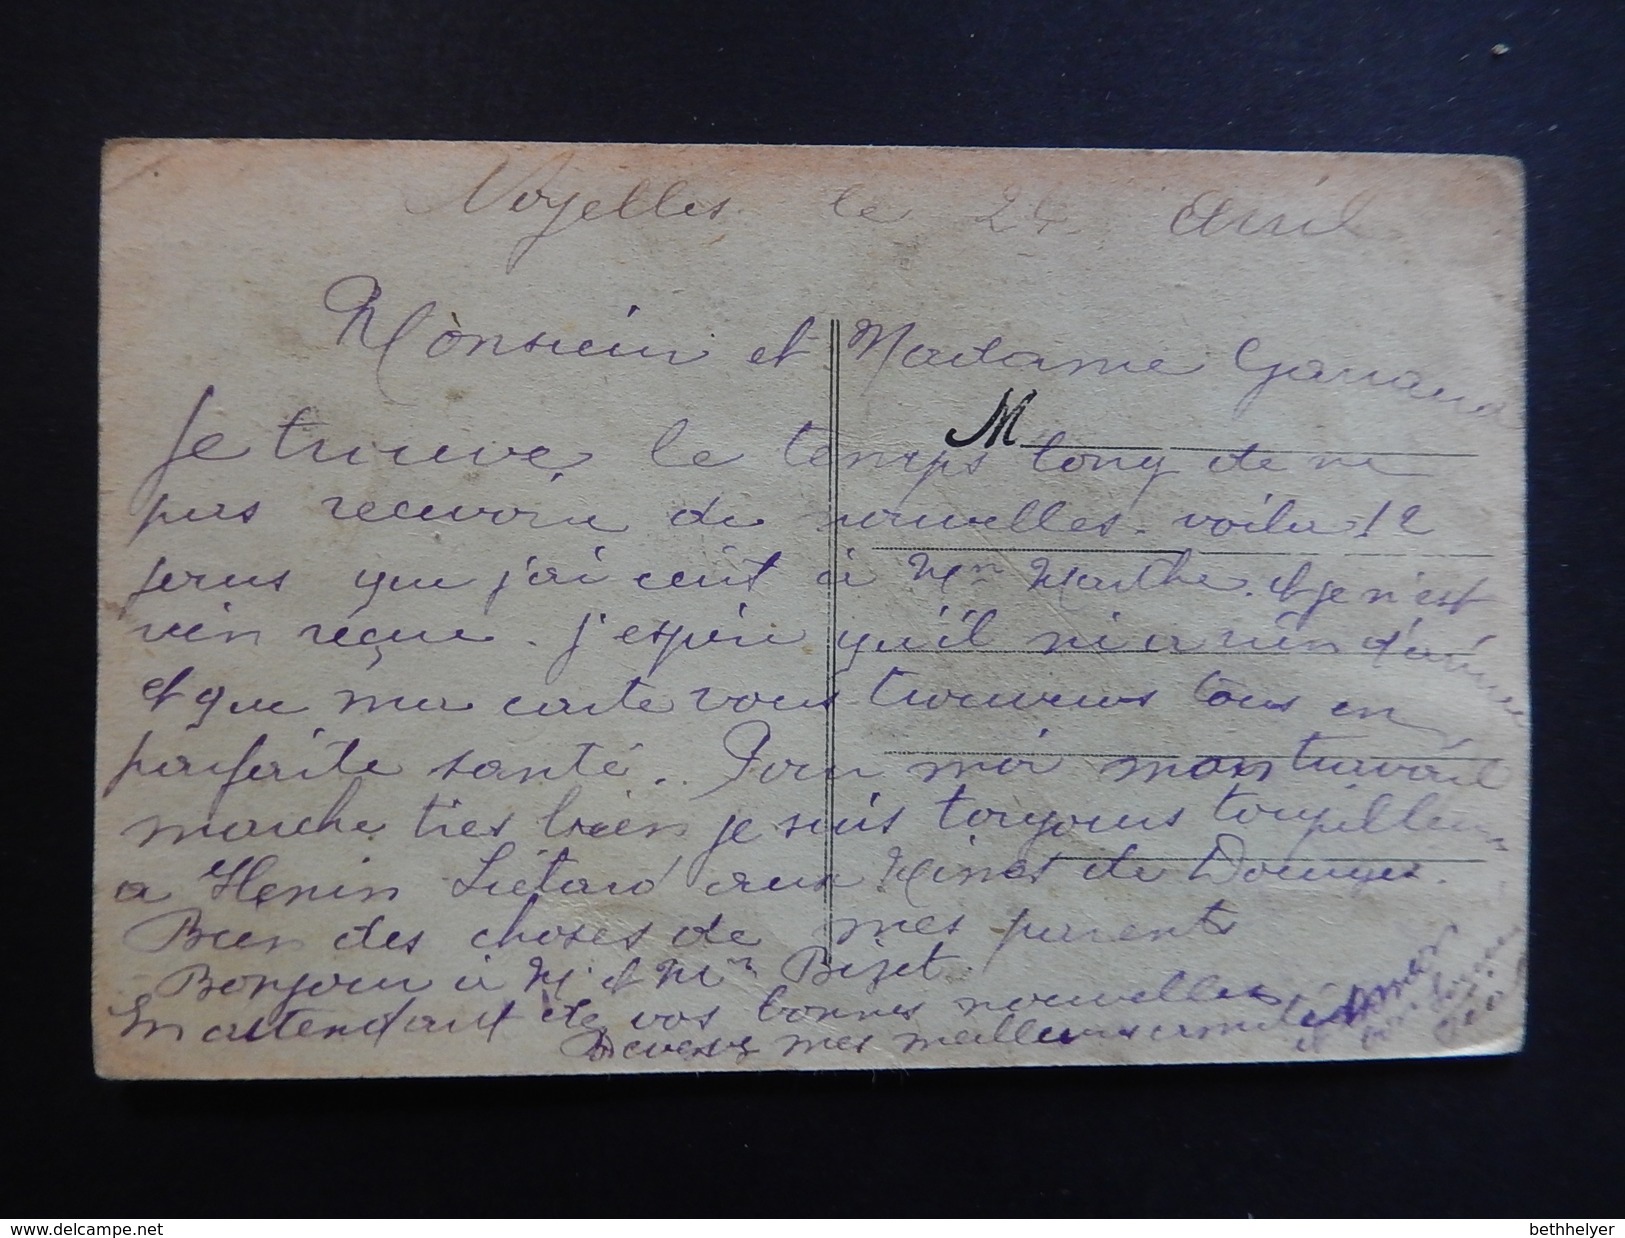 Noyelles le 24 Avril
Monsieur et Madame
M
Je trouve le temps long de ne
pas recevoir de nouvelles. voila 12
jours que j'ai ecrit à Mme Marthe. et je n'est
rien reçue. j'espère qu'il ni a rien
et que ma carte vous trouveras tous en
parfaite santé. Pour moi mon travail
marche tres bien je suis toujours
a Henin Liétard aux Mines de Dourges.
Bien des choses de mes parents
Bonjour à M. et Mme Bizet
En attendant de vos bonnes nouvelles
Recevez mes meilleurs
www.delcampe.net
bethhelyer